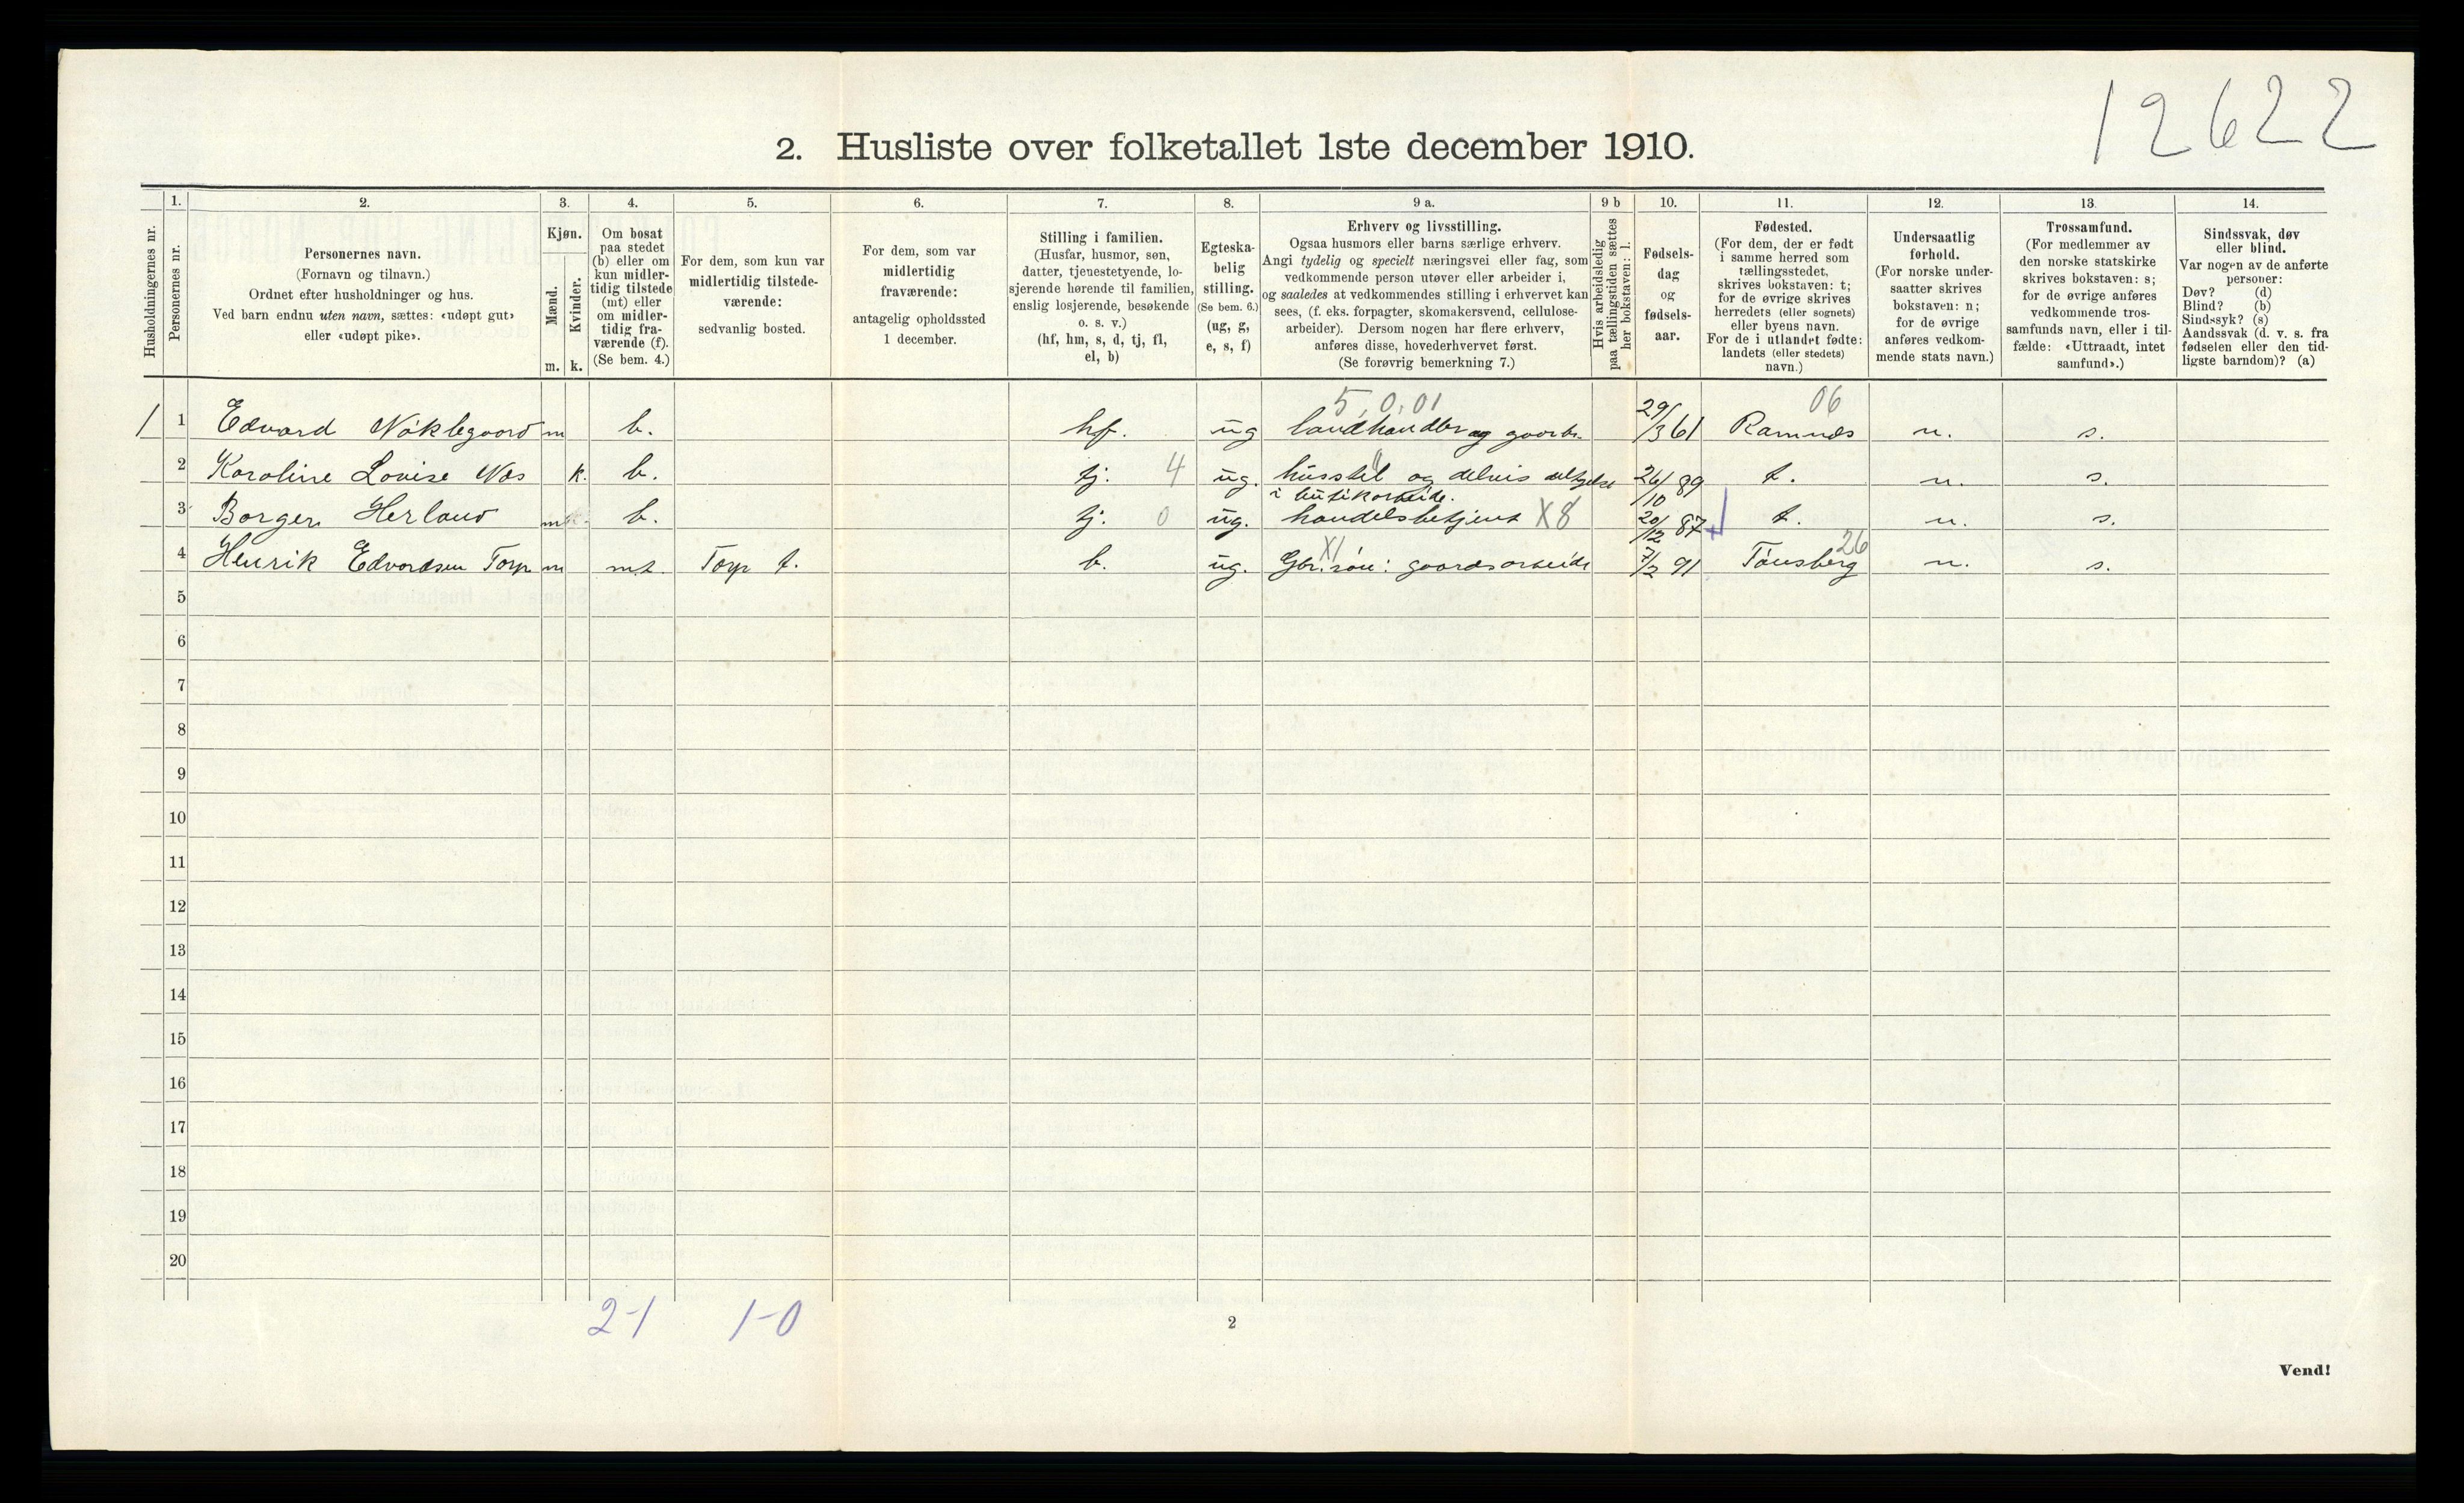 12622
2. Husliste over folketallet 1ste december 1910.
Husholdningernes nr.
1.
Personernes nr.
2.
Personernes navn.
(Fornavn og tilnavn.)
Ordnet efter husholdninger og hus.
Ved barn endnu uten navn, sættes: «udøpt gut»
eller «udøpt pike».
3.
Kjøn.
Mænd.
Kvinder.
m. k.
4.
Om bosat
paa stedet
(b) eller om
kun midler-
tidig tilstede
(mt) eller
om midler-
tidig fra-
værende (f).
(Se bem. 4.)
5.
For dem, som kun var
midlertidig tilstede-
værende:
sedvanlig bosted.
6.
For dem, som var
midlertidig
fraværende:
antagelig opholdssted
1 december.
7.
Stilling i familien.
(Husfar, husmor, søn,
datter, tjenestetyende, lo-
sjerende hørende til familien,
enslig losjerende, besøkende
o. s. v.)
(hf, hm, s, d, tj, fl,
el, b)
8.
Egteska-
belig
stilling.
(Se bem. 6.)
(ug, g,
e, s, f)
9 a.
Erhverv og livsstilling.
Ogsaa husmors eller barns særlige erhverv.
Angi tydelig og specielt næringsvei eller fag, som
vedkommende person utøver eller arbeider i,
og saaledes at vedkommendes stilling i erhvervet kan
sees, (f. eks. forpagter, skomakersvend, cellulose-
arbeider). Dersom nogen har flere erhverv,
anføres disse, hovederhvervet først.
(Se forøvrig bemerkning 7.)
9 b
Hvis arbeidsledig
paa tællingstiden sættes
her bokstaven: l.
10.
Fødsels-
dag
og
fødsels-
aar.
11.
Fødested.
(For dem, der er født
i samme herred som
tællingsstedet,
skrives bokstaven: t;
for de øvrige skrives
herredets (eller sognets)
eller byens navn.
For de i utlandet fødte:
landets (eller stedets)
navn.)
12.
Undersaatlig
forhold.
(For norske under-
saatter skrives
bokstaven: n;
for de øvrige
anføres vedkom-
mende stats navn.)
13.
Trossamfund.
(For medlemmer av
den norske statskirke
skrives bokstaven: s;
for de øvrige anføres
vedkommende tros-
samfunds navn, eller i til-
fælde: «Uttraadt, intet
samfund».)
14.
Sindssvak, døv
eller blind.
Var nogen av de anførte
personer:
Døv? (d)
Blind? (b)
Sindssyk? (s)
Aandssvak (d. v. s. fra
fødselen eller den tid-
ligste barndom)? (a)
5,0,01 06
1 1 Edvard Nøklegaard m b. hf. ug landhandler og gaardbr. 29/3 61 Ramnes n. s.
2 Karoline Lovise Næs k. b. tj. 4 ug. husstel og delvis deltagelse 26/10 89 t. n. s.
i butikarbeide.
3 Borger Herland m b. tj. 0 ug. handelsbetjent X8 20/12 87 t. n. s.
X1 26
4 Henrik Edvardsen Torp m mt. Torp t. b. ug. Gbr.søn: gaardsarbeide 7/2 91 Tønsberg n. s.
5
6
7
8
9
10
11
12
13
14
15
16
17
18
19
20
2-1 1-0
2
Vend!